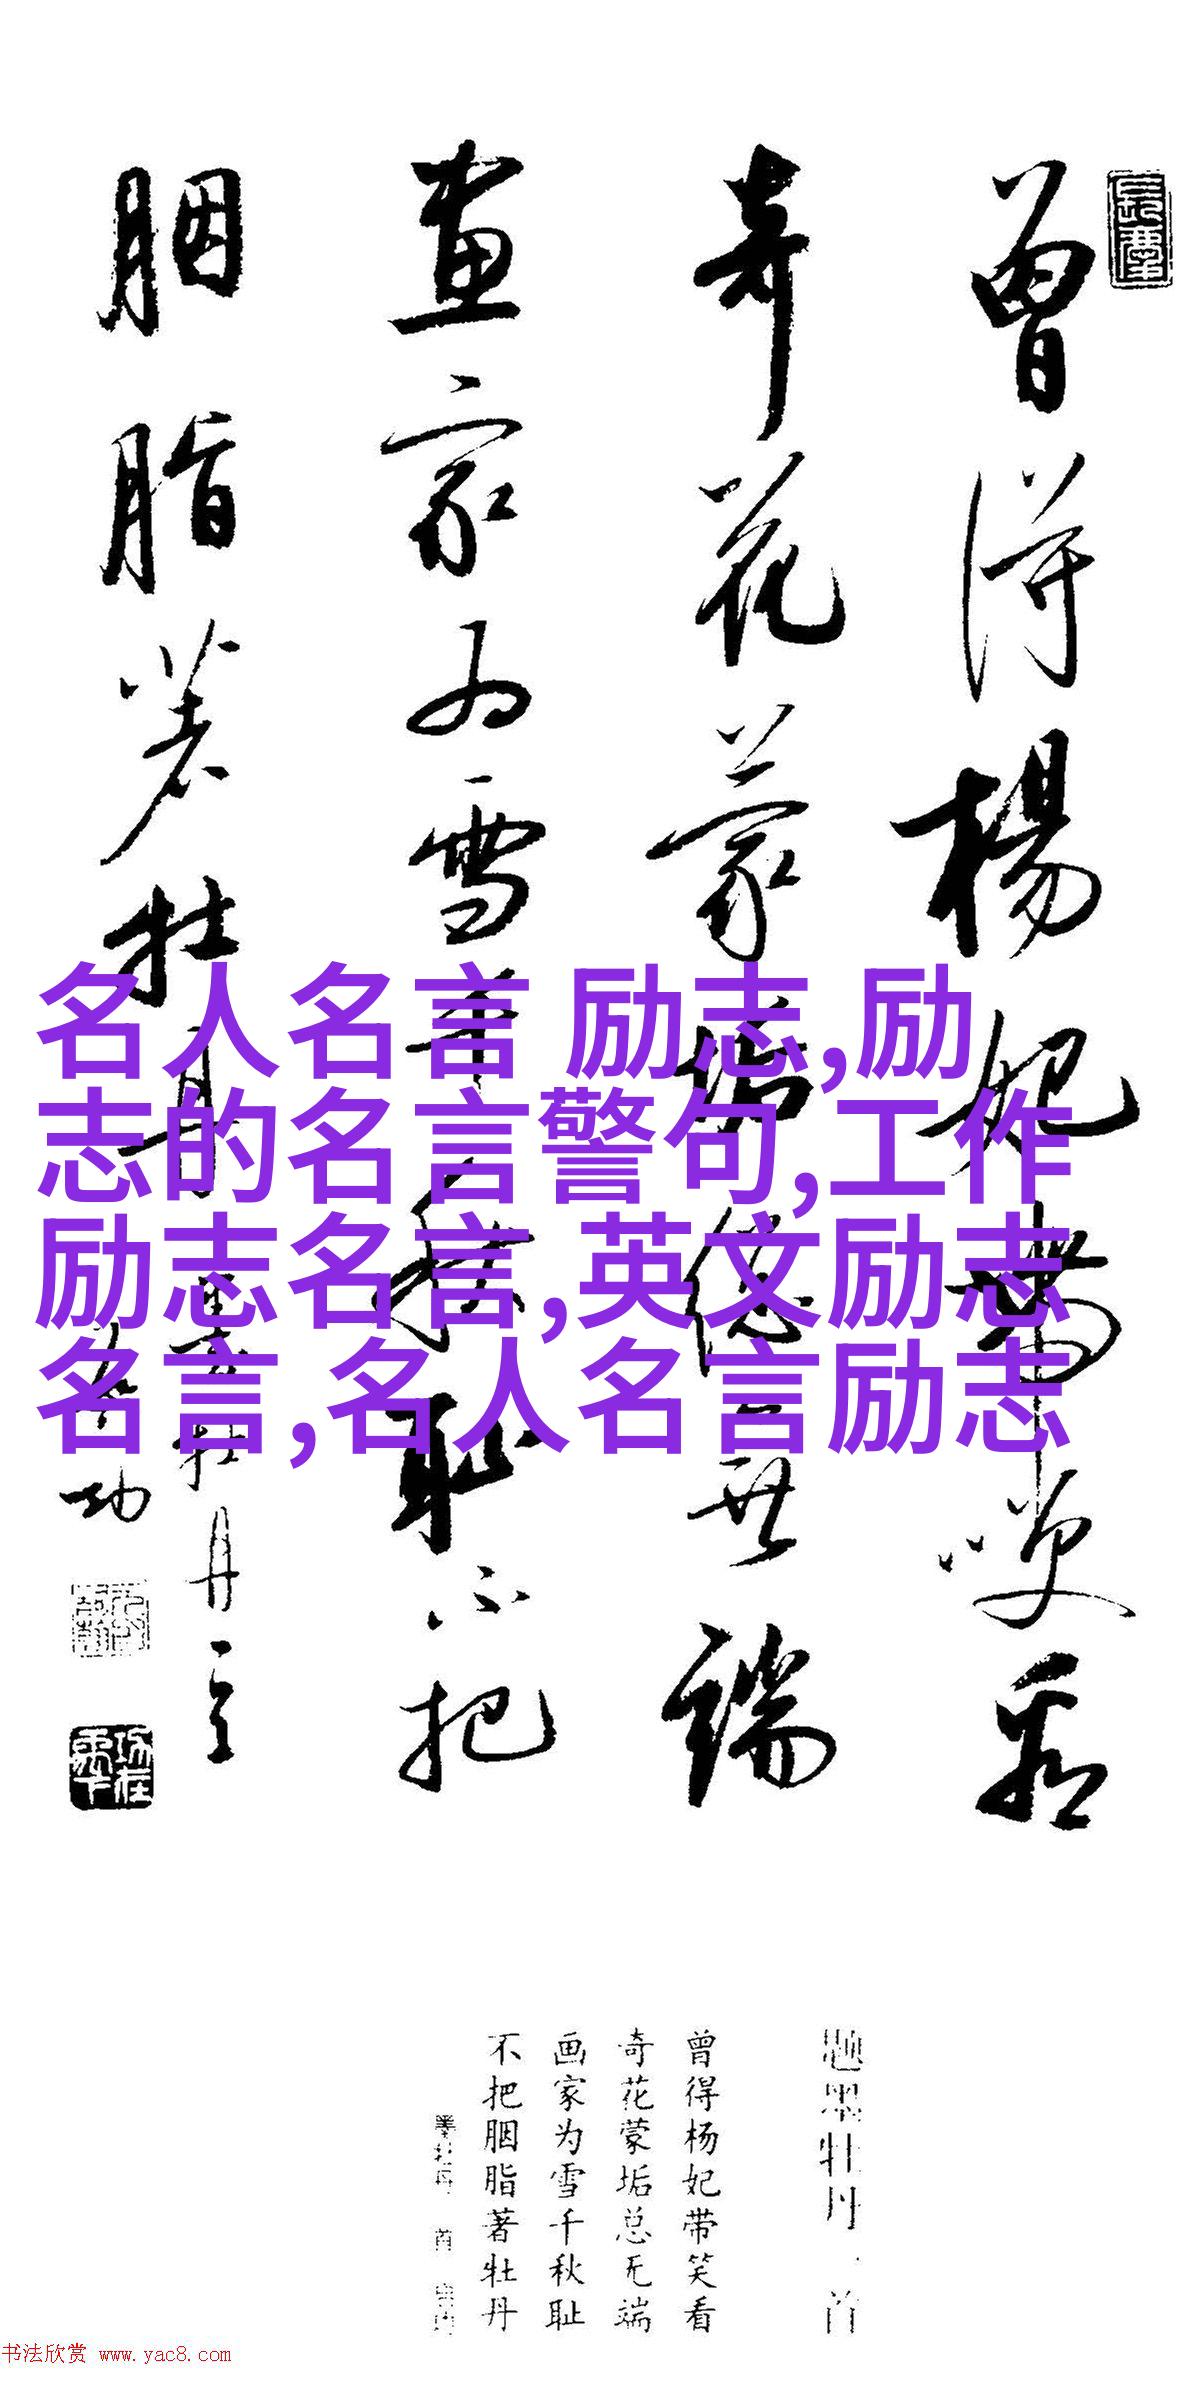 曾得楊妃帶笑看
奇花蒙垢總无端
畫家为雪千秋耻不把
胭脂著牡丹
墨牡丹一首
启功
名人名言 励志,励
志的名言警句,工作
励志名言,英文励志
名言,名人名言励志
题墨牡丹一首
曾得杨妃带笑看
奇花蒙垢总无端
画家为雪千秋耻
不把胭脂著牡丹
书法欣赏 www.yac8.com